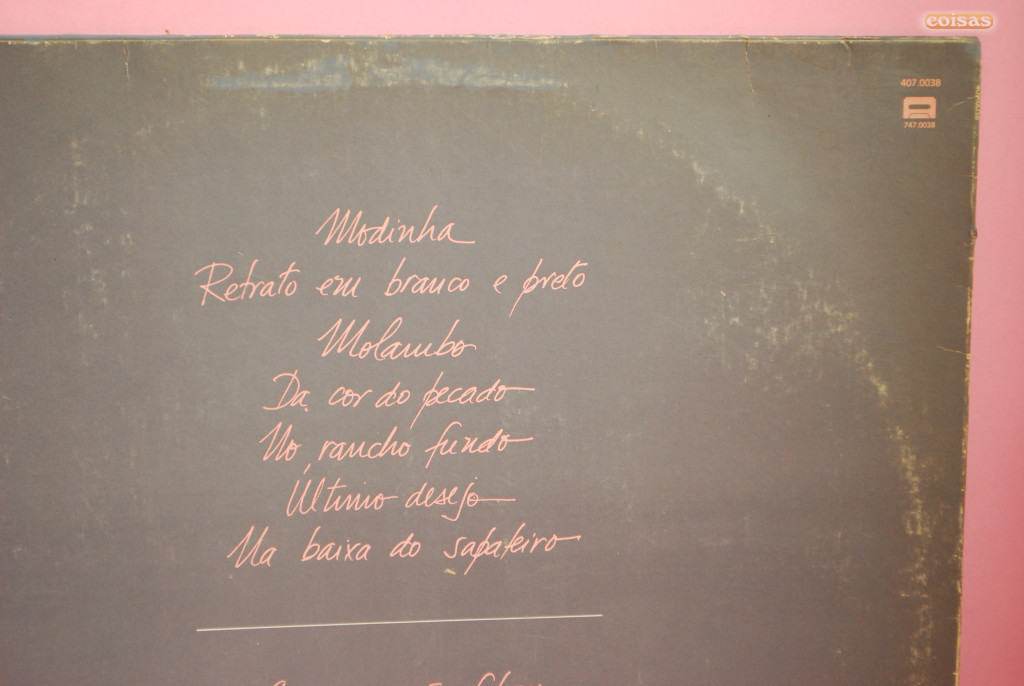 coisas
407.0038
747.0038
Modinha
Retrato em branco e preto
Molambo
Da cor do pecado
No rancho fundo
Último desejo
Na baixa do sapateiro